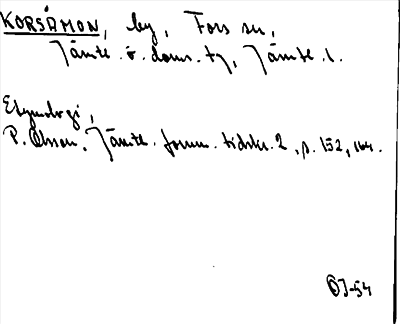 KORSÅMON, by, Fors sn,
Jämtl. ö. doms. tg, Jämtl. l.
Etymologi,
P. Olsson, Jämtl. fornm. tidskr. 2, p. 152, 164.
OJ-54